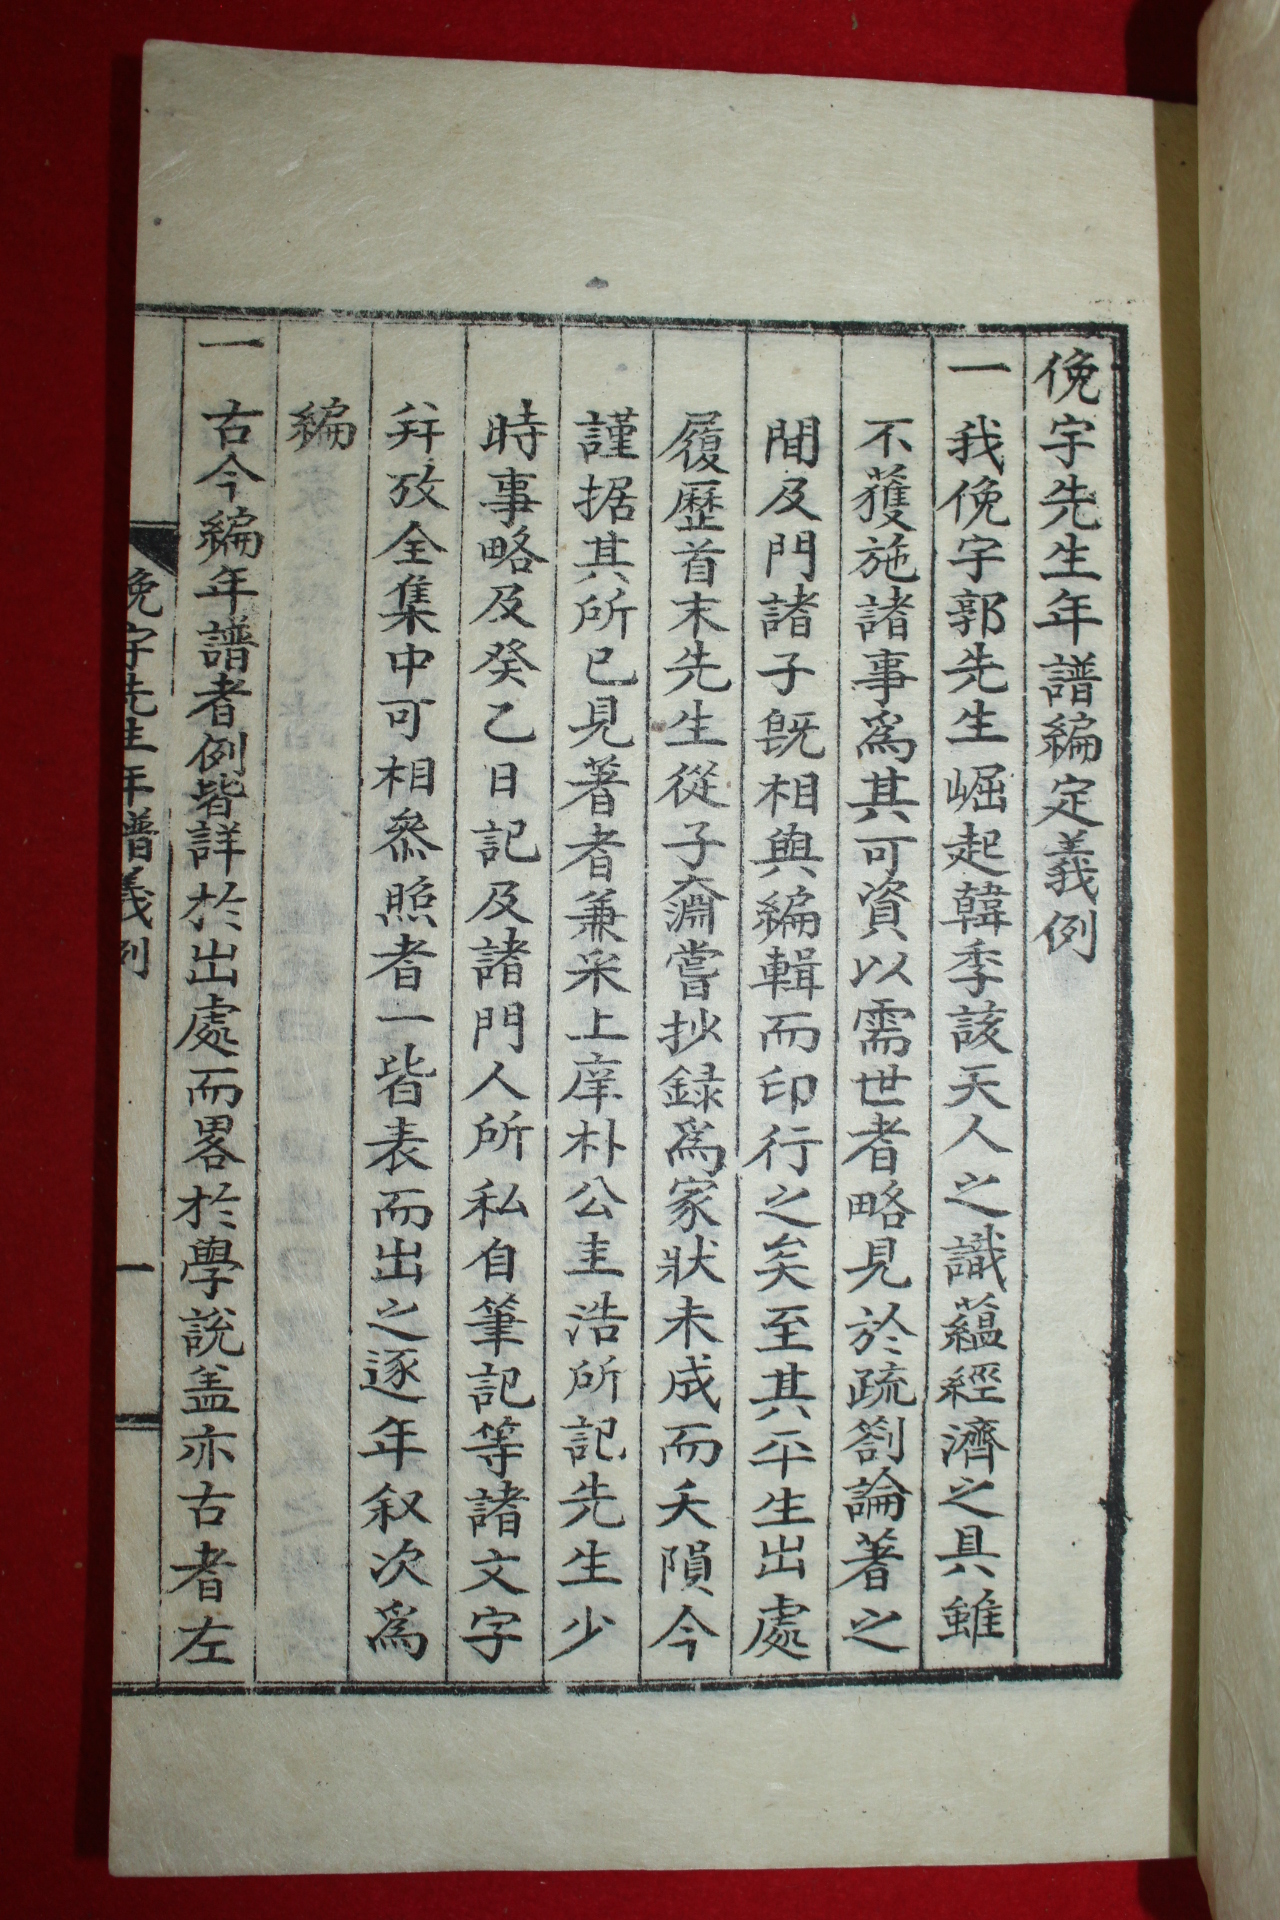 俛宇先生年譜編定義例
一 我俛宇郭先生崛起韓季該天人之識蘊經濟之具雖
不獲施諸事爲其可資以需世者略見於疏劄論著之
間及門諸子旣相與編輯而印行之矣至其平生出處
履歷首末先生從子奫嘗抄録爲家狀未成而夭隕今
謹据其所已見著者兼采上庠朴公圭浩所記先生少
時事略及癸乙日記及諸門人所私自筆記等諸文字
幷攷全集中可相叅照者一皆表而出之逐年叙次爲
編
一 古今編年譜者例皆詳於出處而畧於學說盖亦古者左
俛宇先生年譜義例 一